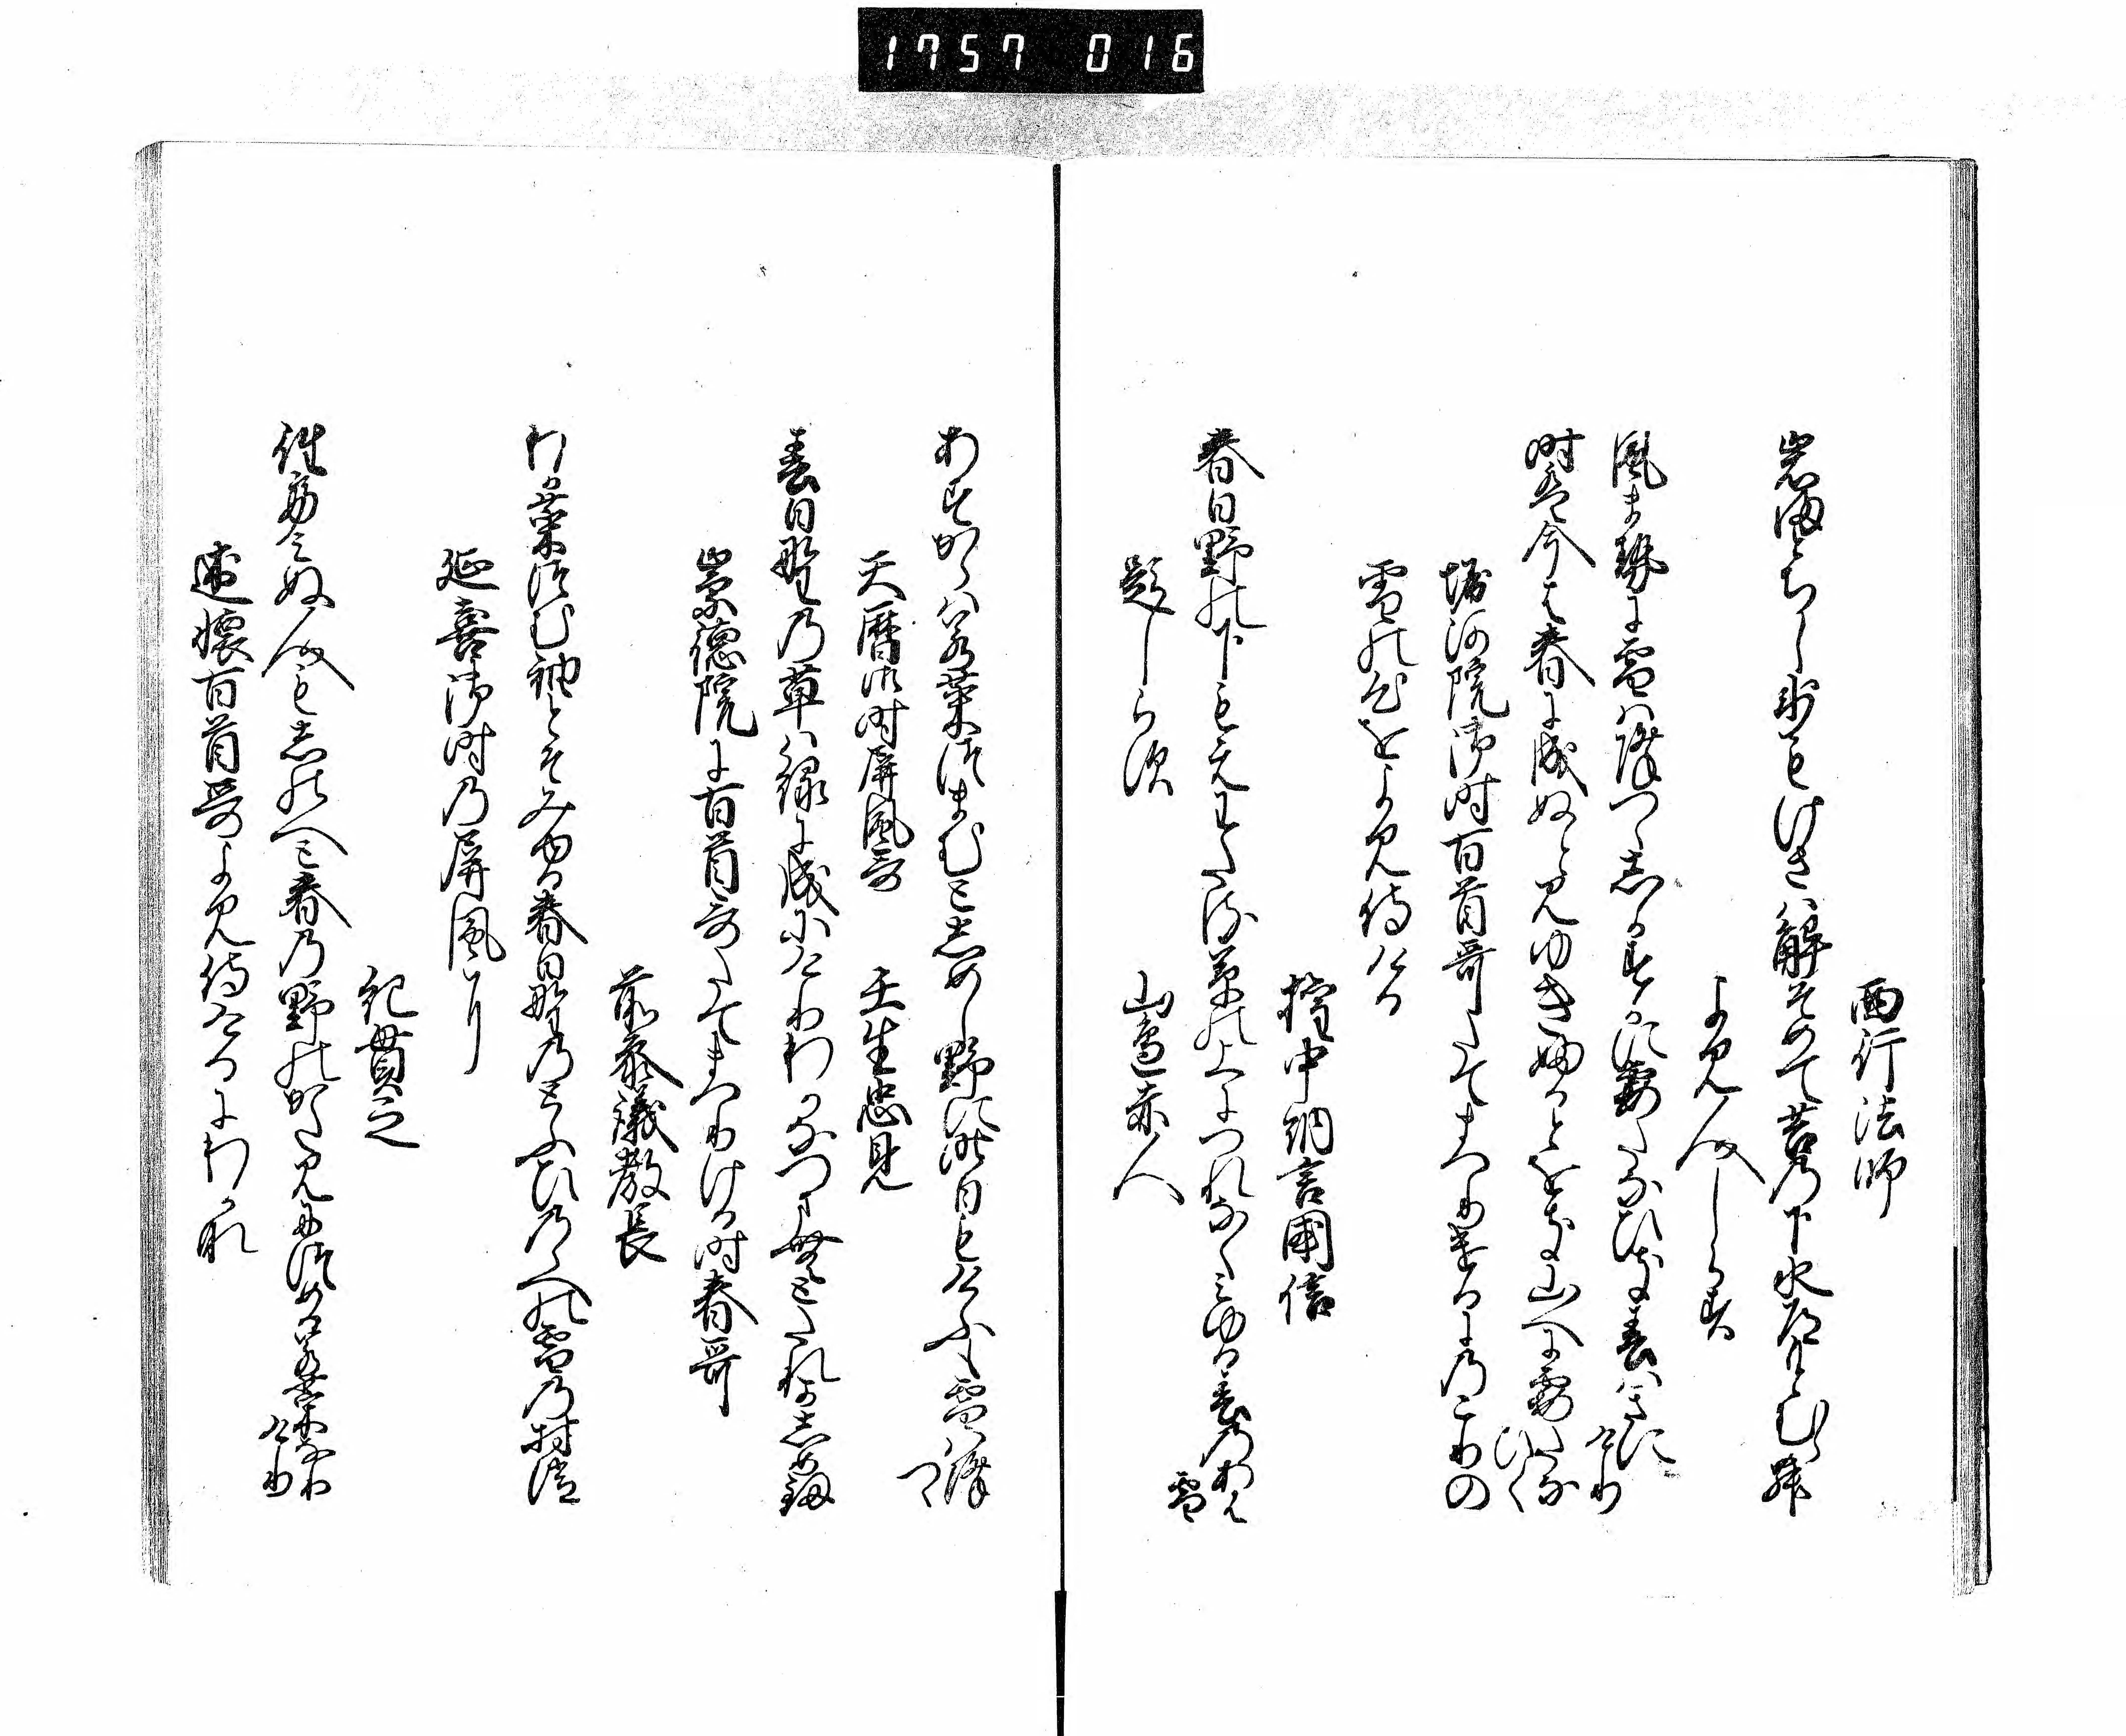 1757 016
西行法師
岩間とちし氷もけさは解そめて苔の下水道もとむ也
よみ人しらす
風ませに雪は降つゝしかすかに霞たなひき春はきに
けり
時は今は春に成ぬとみゆきふるとをき山へに霞たな
ひく
堀河院御時百首哥たてまつりけるにのこりの
雪の心をよみ侍ける
権中納言国信
春日野の下もえわたる草の上につれなくみゆる春のあは
雪
題しらす
山辺赤人
あすからは若菜つまむとしめし野に昨日もけふも雪は降
つゝ
天暦御時屏風哥
壬生忠見
春日野の草は緑に成にけりわかなつまむとたれかしめ釼
崇徳院に百首哥たてまつりける時春哥
前参議教長
わか菜つむ袖とそみゆる春日野のとふひのゝへの雪の村消
延喜御時の屏風に
紀貫之
行て見ぬ人もしのへと春の野のかたみにつめる若菜なり
けり
述懐百首哥よみ侍けるにわかな